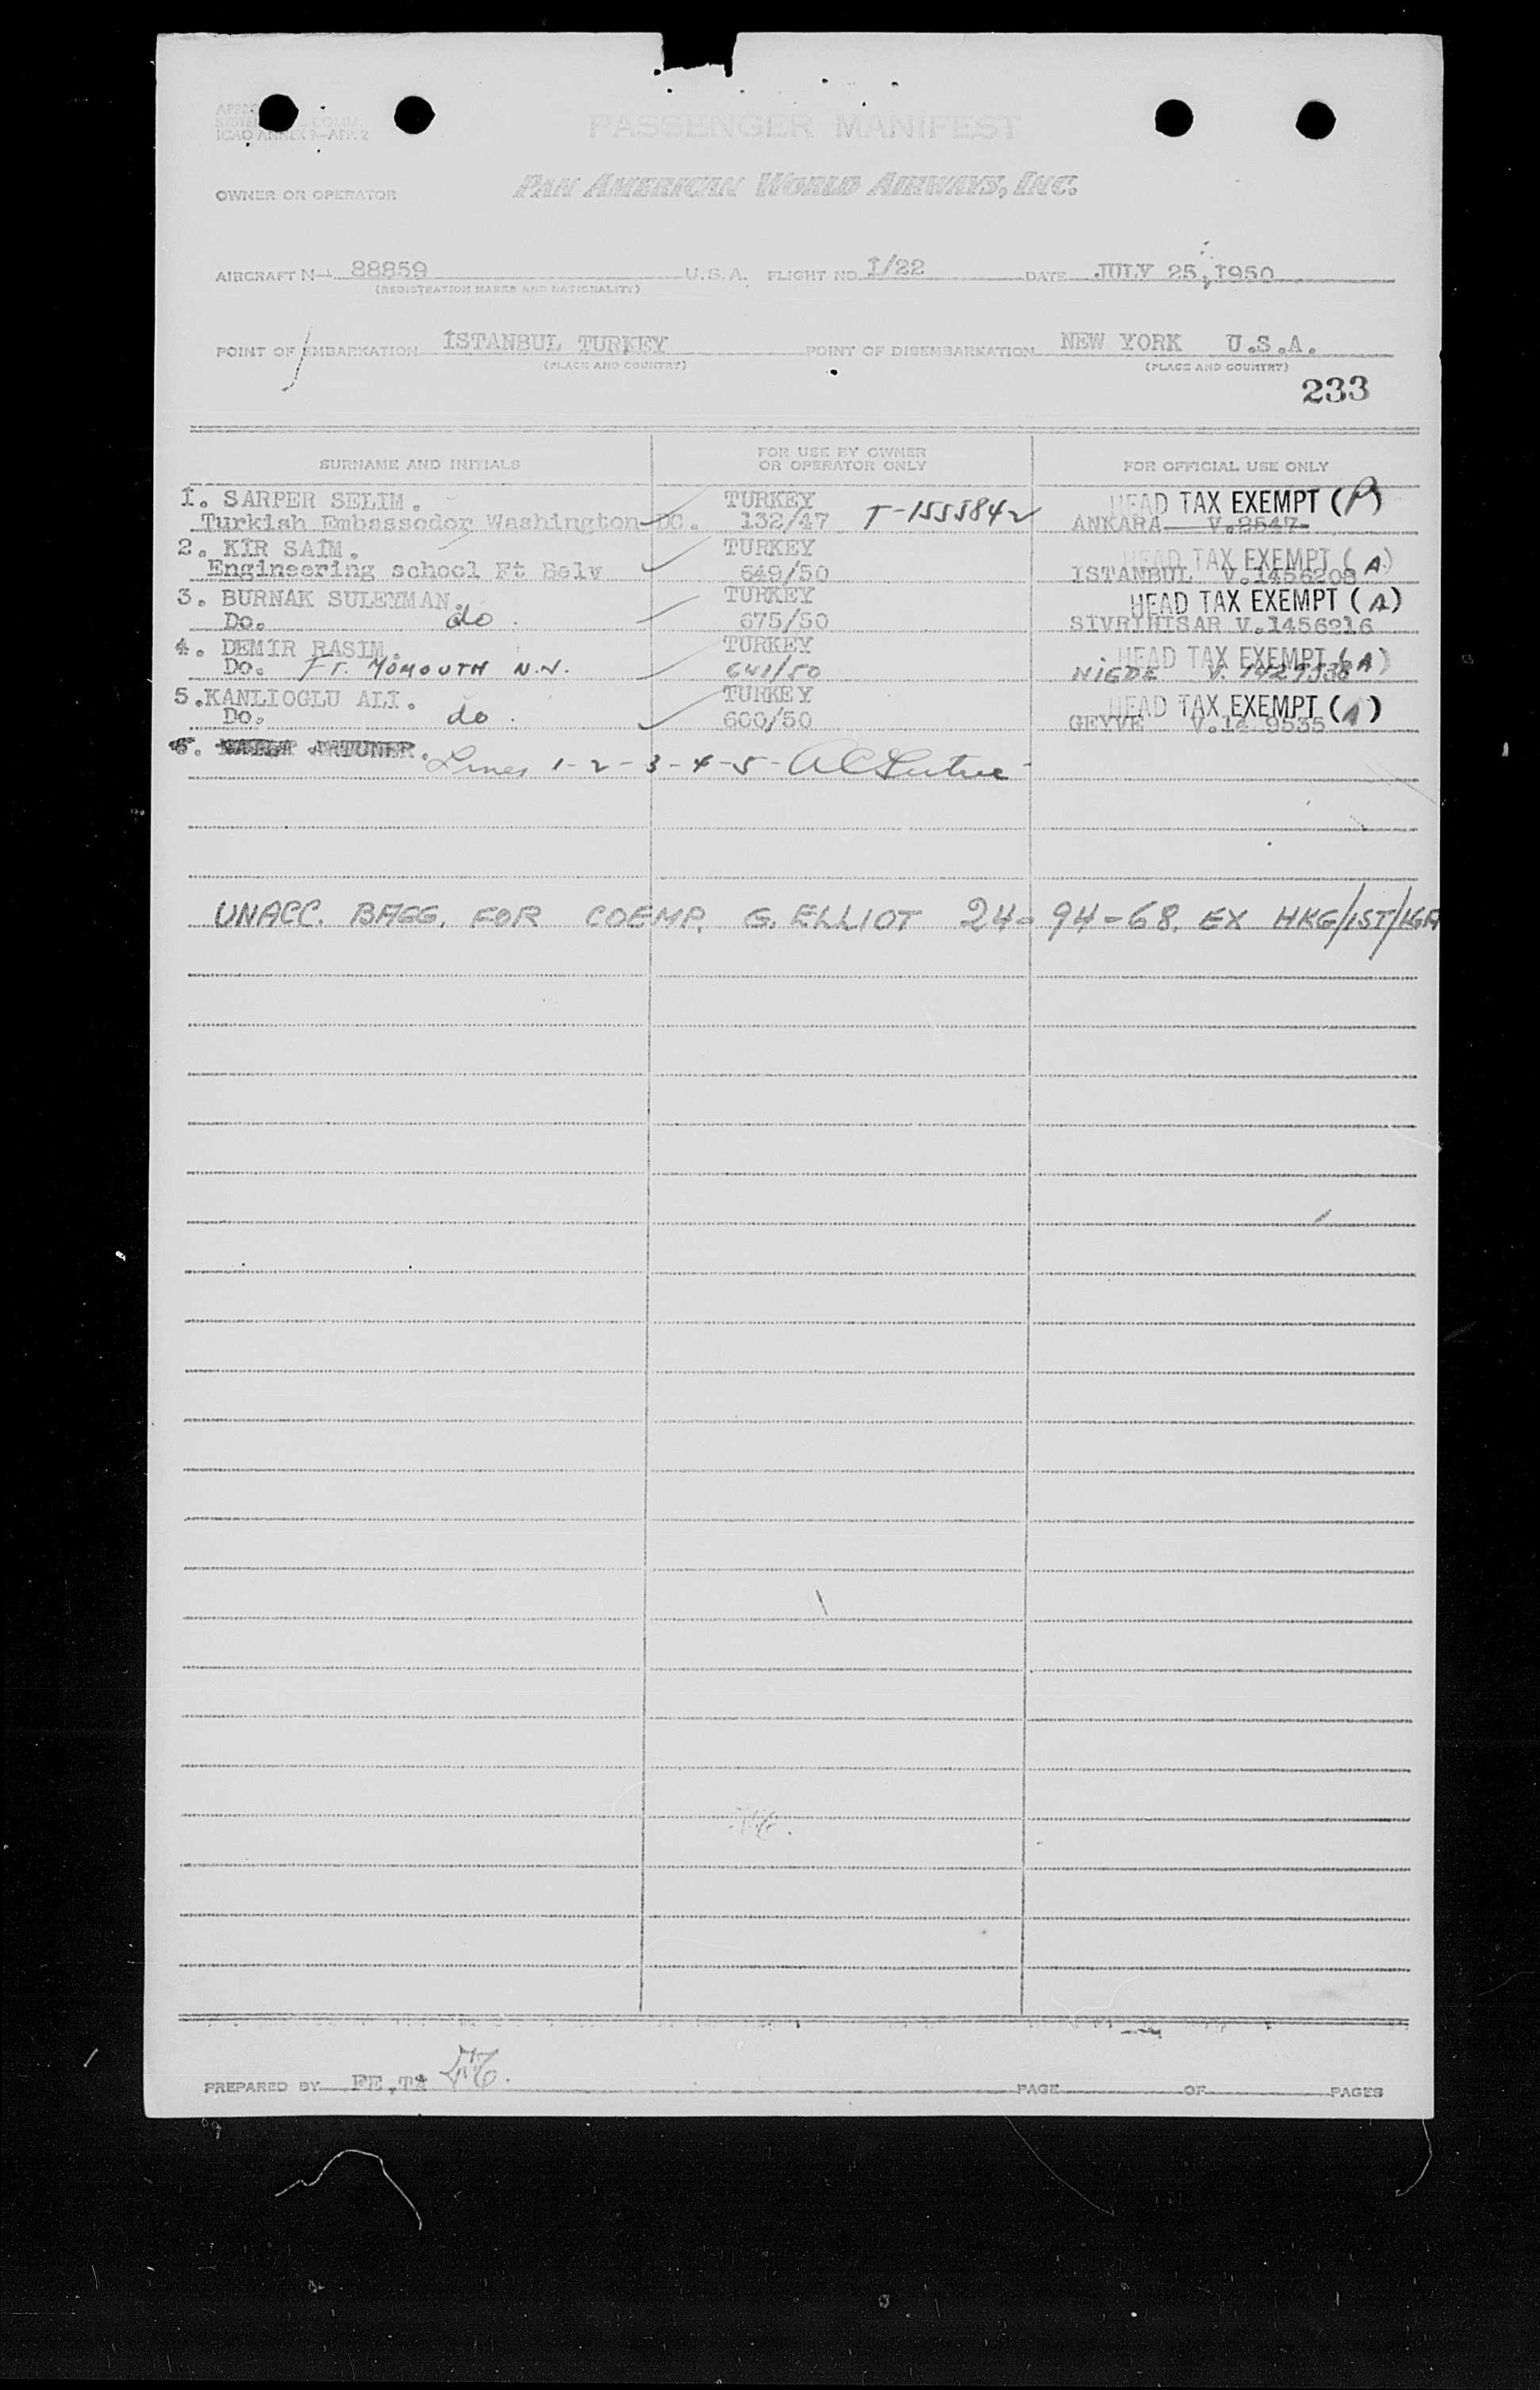 COMM.
ICAO ANNEX 9—APP. 2
PASSENGER MANIFEST
OWNER OR OPERATOR PAN AMERICAN WORLD AIRWAYS, INC.
AIRCRAFT N- 88859 U.S.A. FLIGHT NO. 1/22 DATE JULY 25, 1950
(REGISTRATION MARKS AND NATIONALITY)
POINT OF EMBARKATION İSTANBUL TURKEY POINT OF DISEMBARKATION NEW YORK U.S.A.
(PLACE AND COUNTRY) (PLACE AND COUNTRY)
233
SURNAME AND INITIALS FOR USE BY OWNER OR OPERATOR ONLY FOR OFFICIAL USE ONLY
1. SARPER SELIM. TURKEY HEAD TAX EXEMPT (A)
Turkish Embassador Washington DC. 132/47 T-1555842 ANKARA V.2547
2. KIR SAIM. TURKEY HEAD TAX EXEMPT (A)
Engineering school Ft Belv 649/50 ISTANBUL V.1456208
3. BURNAK SULEYMAN. TURKEY HEAD TAX EXEMPT (A)
Do. do. 675/50 SIVRIHISAR V.1456216
4. DEMIR RASIM. TURKEY HEAD TAX EXEMPT (A)
Do. FT. MOMOUTH 641/50 NIGDE V.
5. KANLIOGLU ALI. TURKEY HEAD TAX EXEMPT (A)
Do. do. 600/50 GEYVE
6. ARTUNER.
Lines 1-2-3-4-5-
UNACC. BAGG. FOR COEMP. G. ELLIOT 24-94-68. EX HKG/IST/
PREPARED BY FE. PAGE OF PAGES